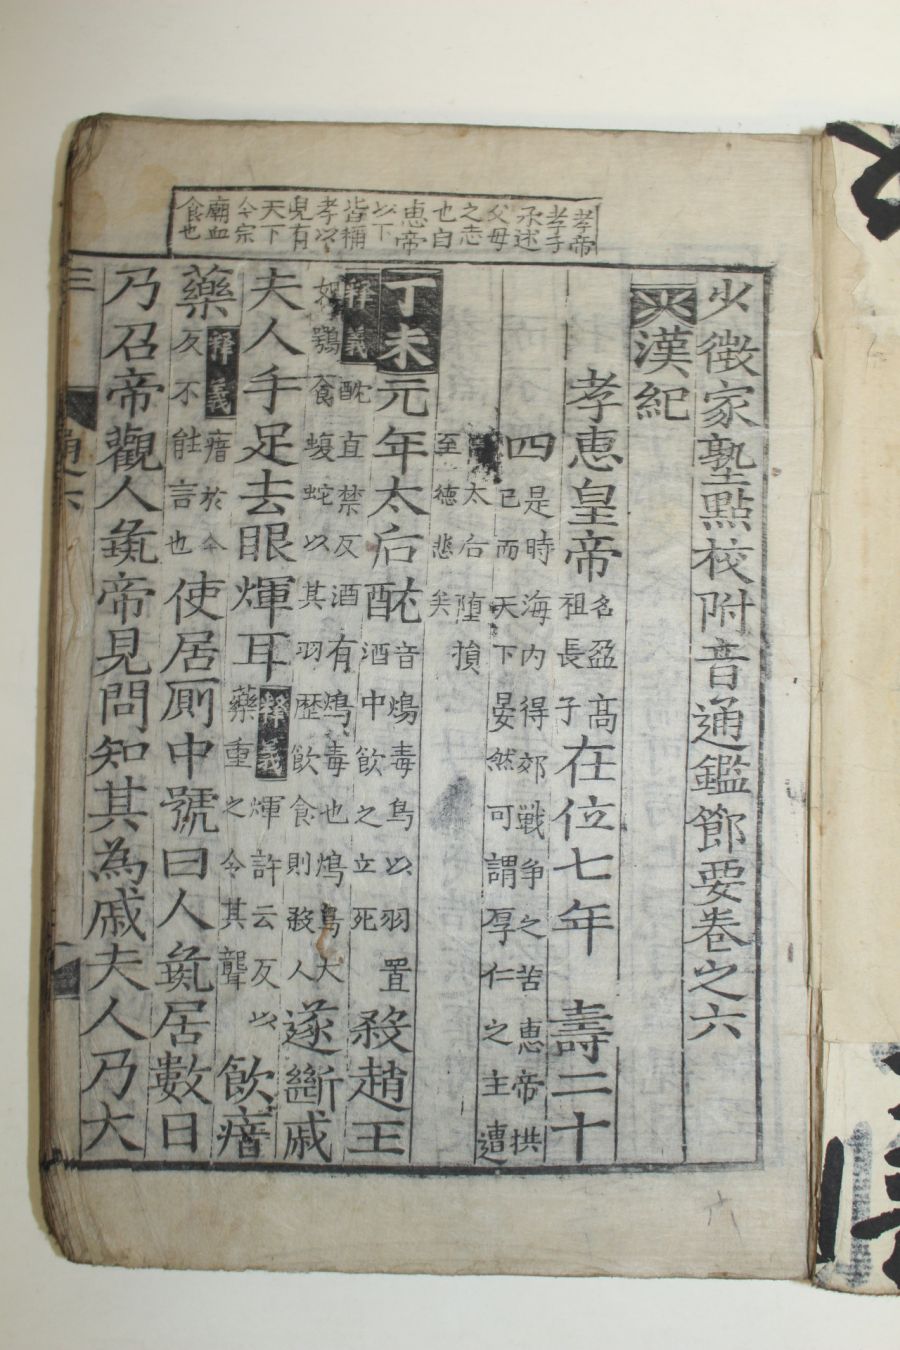 孝帝
孝子
丞述
父母
之志
也自
恵帝
以下
皆稱
孝以
皃有
天下
令宗
廟血
食也
少微家塾點校附音通鑑節要卷之六
漢紀
孝惠皇帝名盈髙祖長子在位七年 壽二十
四是時海内得郊戰争之苦恵帝拱已而天下晏然可謂厚仁之主遭
太后堕損至徳悲矣
丁未元年太后酖音鴆毒鳥以羽置酒中飲之立死殺趙王
釋義酖直禁反酒有鴆毒也鴆鳥大如鶚食蝮蛇以其羽歴飲食則殺人遂斷戚
夫人手足去眼煇耳釋義煇許云反以藥重之令其聾飲瘖
藥釋義瘖於今久不能言也使居厠中號曰人彘居數日
乃召帝觀人彘帝見問知其為戚夫人乃大